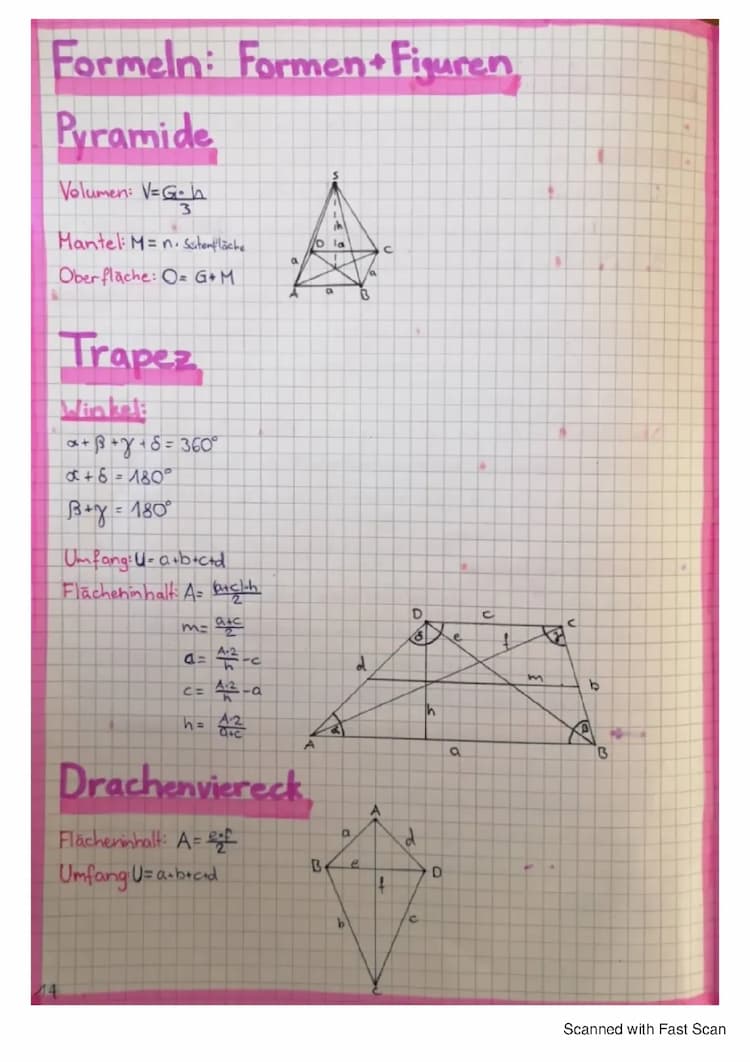 Formeln: Formen+Figuren
Pyramide
Volumen: V=G·h/3
Mantel: M = n · Seitenfläche
Oberfläche: O= G+M
S
h
D a C
a a
A a B
Trapez
Winkel:
α+β+γ+δ = 360°
α+δ = 180°
β+γ = 180°
Umfang: U= a+b+c+d
Flächeninhalt: A= (a+c)·h/2
m= a+c/2
a= A·2/h -c
c= A·2/h -a
h= A·2/a+c
D c C
δ e f γ
d m b
h
α β
A a B
Drachenviereck
Flächeninhalt: A= e·f/2
Umfang: U= a+b+c+d
A
a d
B e D
f
b c
C
14
Scanned with Fast Scan